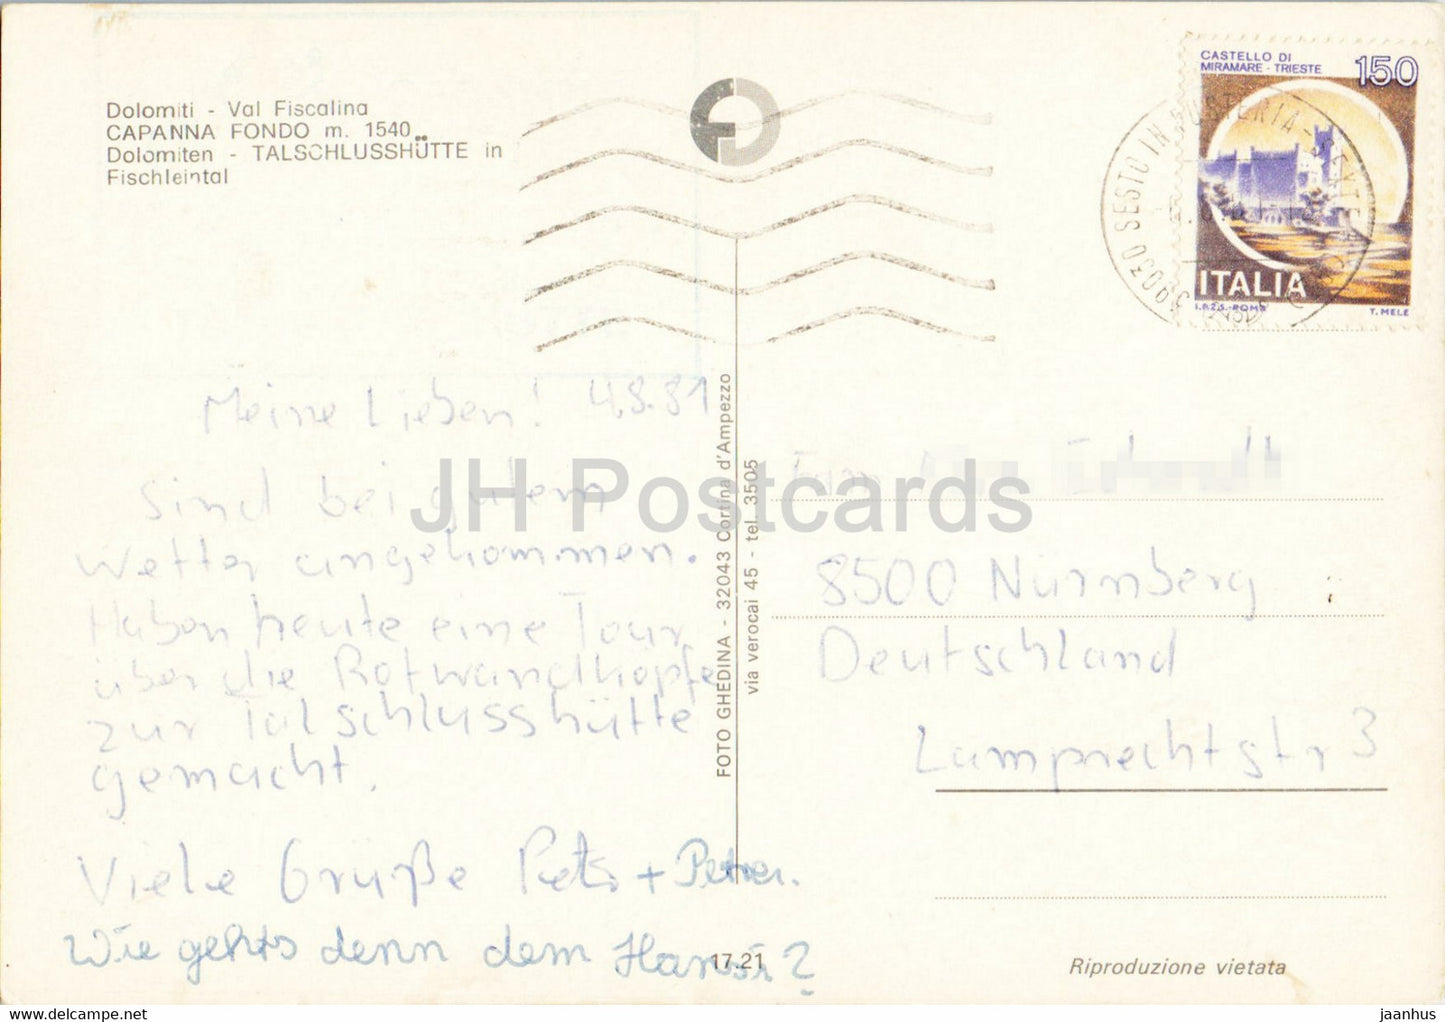 Dolomiti - Val Fiscalina
CAPANNA FONDO m. 1540
Dolomiten - TALSCHLUSSHÜTTE in
Fischleintal
CASTELLO DI
MIRAMARE - TRIESTE
150
ITALIA
I.P.Z.S. - ROMA
T. MELE
39030 SESTO IN PUSTERIA - SEXTEN
Meine Lieben! 4.8.81
Sind bei gutem
Wetter angekommen.
Haben heute eine Tour
über die Rotwandköpfe
zur Talschlusshütte
gemacht.
Viele Grüße Peter + Petra.
Wie gehts denn dem Hansi?
FOTO GHEDINA - 32043 Cortina d'Ampezzo
via verocai 45 - tel. 3505
8500 Nürnberg
Deutschland
Lamprechtstr 3
17.21
Riproduzione vietata
JH Postcards
jaanhus